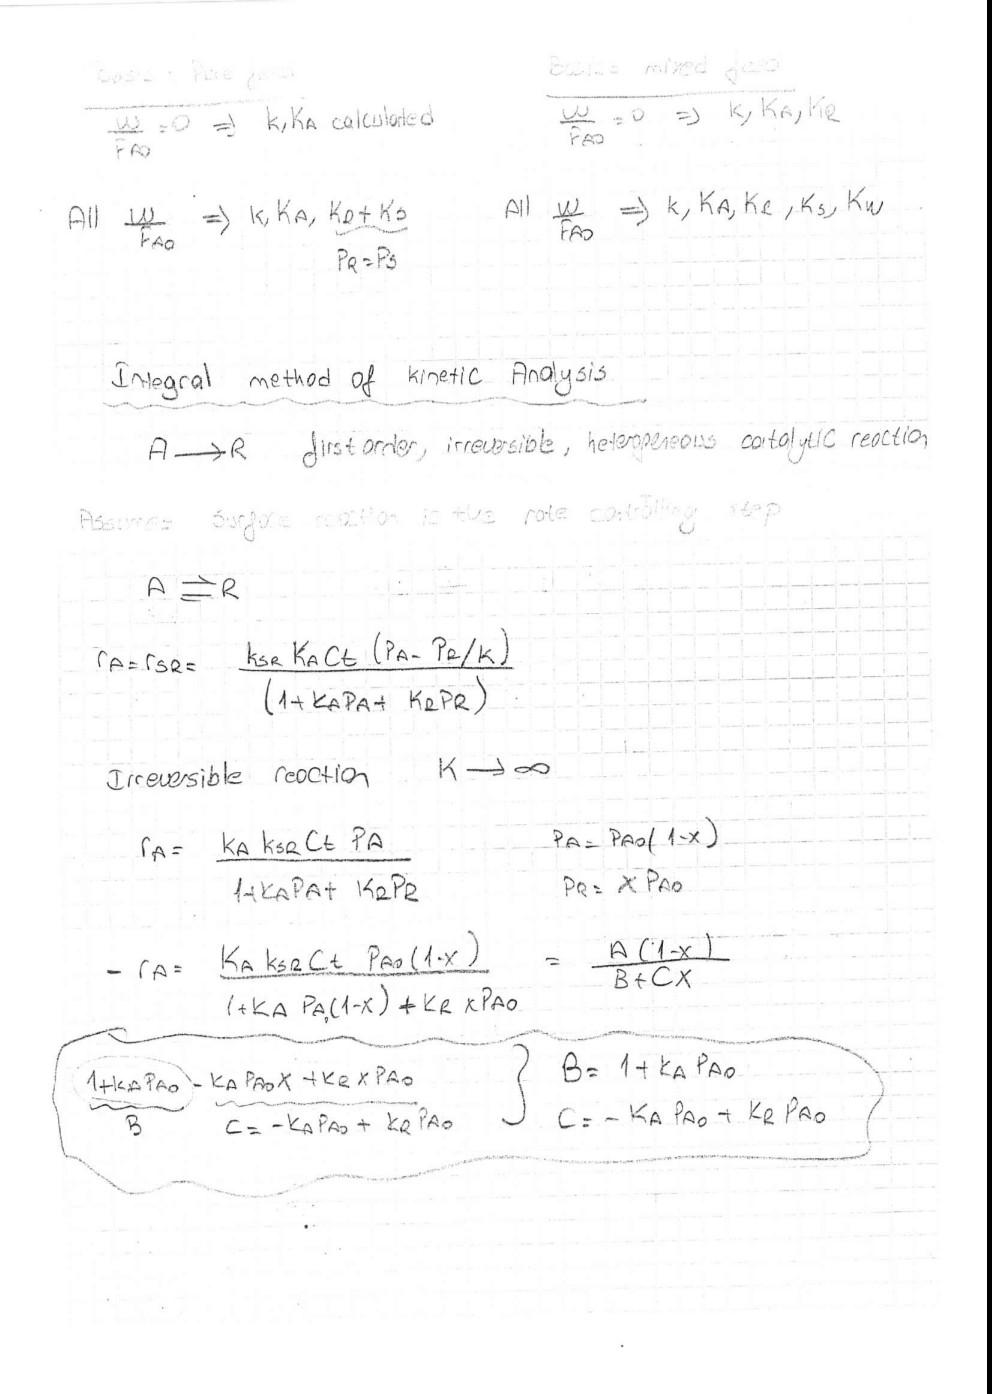 Basis: Pure feed
W/FA0 = 0 ⇒ k, KA calculated
All W/FA0 ⇒ k, KA, KR + KS
PR = PS
Basis: mixed feed
W/FA0 = 0 ⇒ k, KA, KR
All W/FA0 ⇒ k, KA, KR, KS, KW
Integral method of kinetic Analysis
A → R first order, irreversible, heterogeneous catalytic reaction
Assumes surface reaction is the rate controlling step
A ⇌ R
rA = rSR = kSR KA Ct (PA - PR/K) / (1 + KAPA + KRPR)
Irreversible reaction K → ∞
rA = KA kSR Ct PA / 1 + KAPA + KRPR
PA = PA0(1-x)
PR = x PA0
- rA = KA kSR Ct PA0(1-x) / 1 + KA PA0(1-x) + KR x PA0 = A(1-x) / B + CX
1 + KA PA0 - KA PA0 x + KR x PA0 } B = 1 + KA PA0
B C = -KA PA0 + KR PA0 C = - KA PA0 + KR PA0